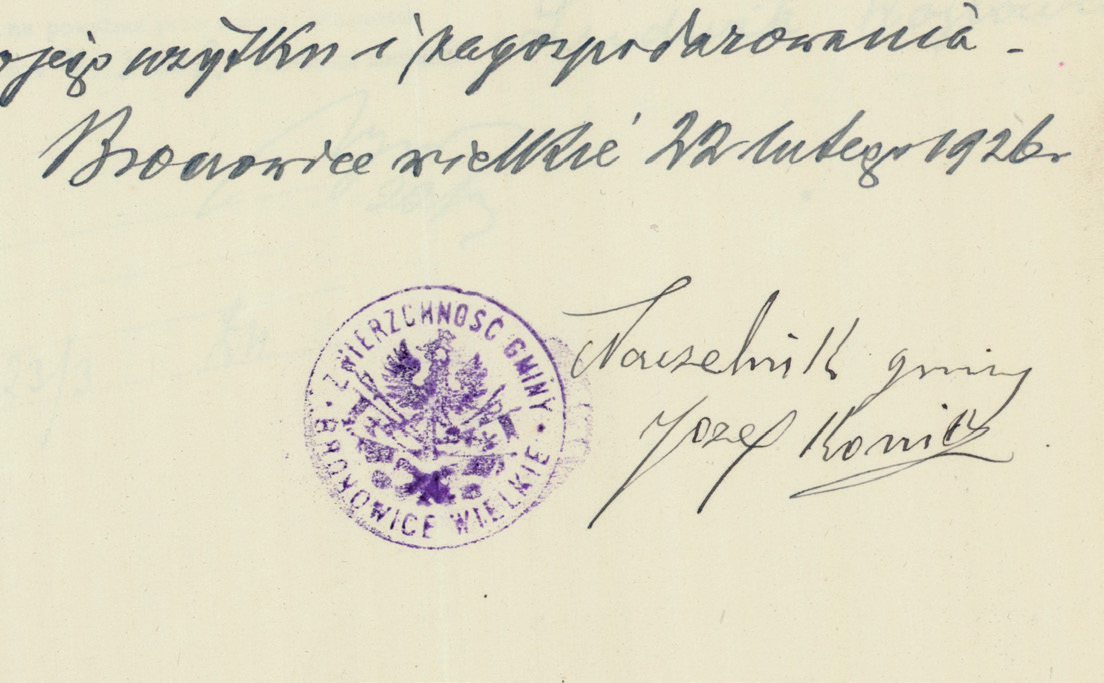 użytku i zagospodarowania -
Bronowice wielkie 22 lutego 1926 r
ZWIERZCHNOŚĆ GMINY
· BRONOWICE WIELKIE ·
Naczelnik gminy
Józef Konicz